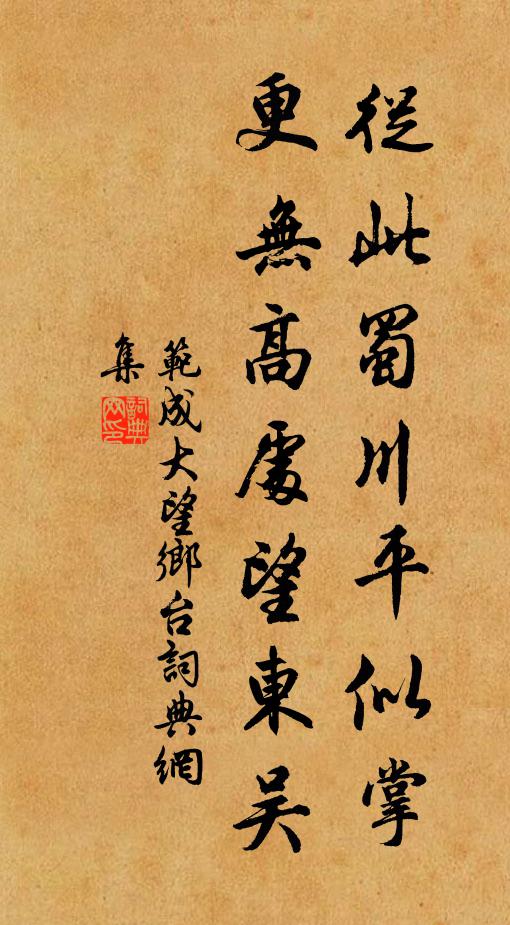 從此蜀川平似掌
更無高處望東吴
範成大望鄉台詞典網
集
詞典網印